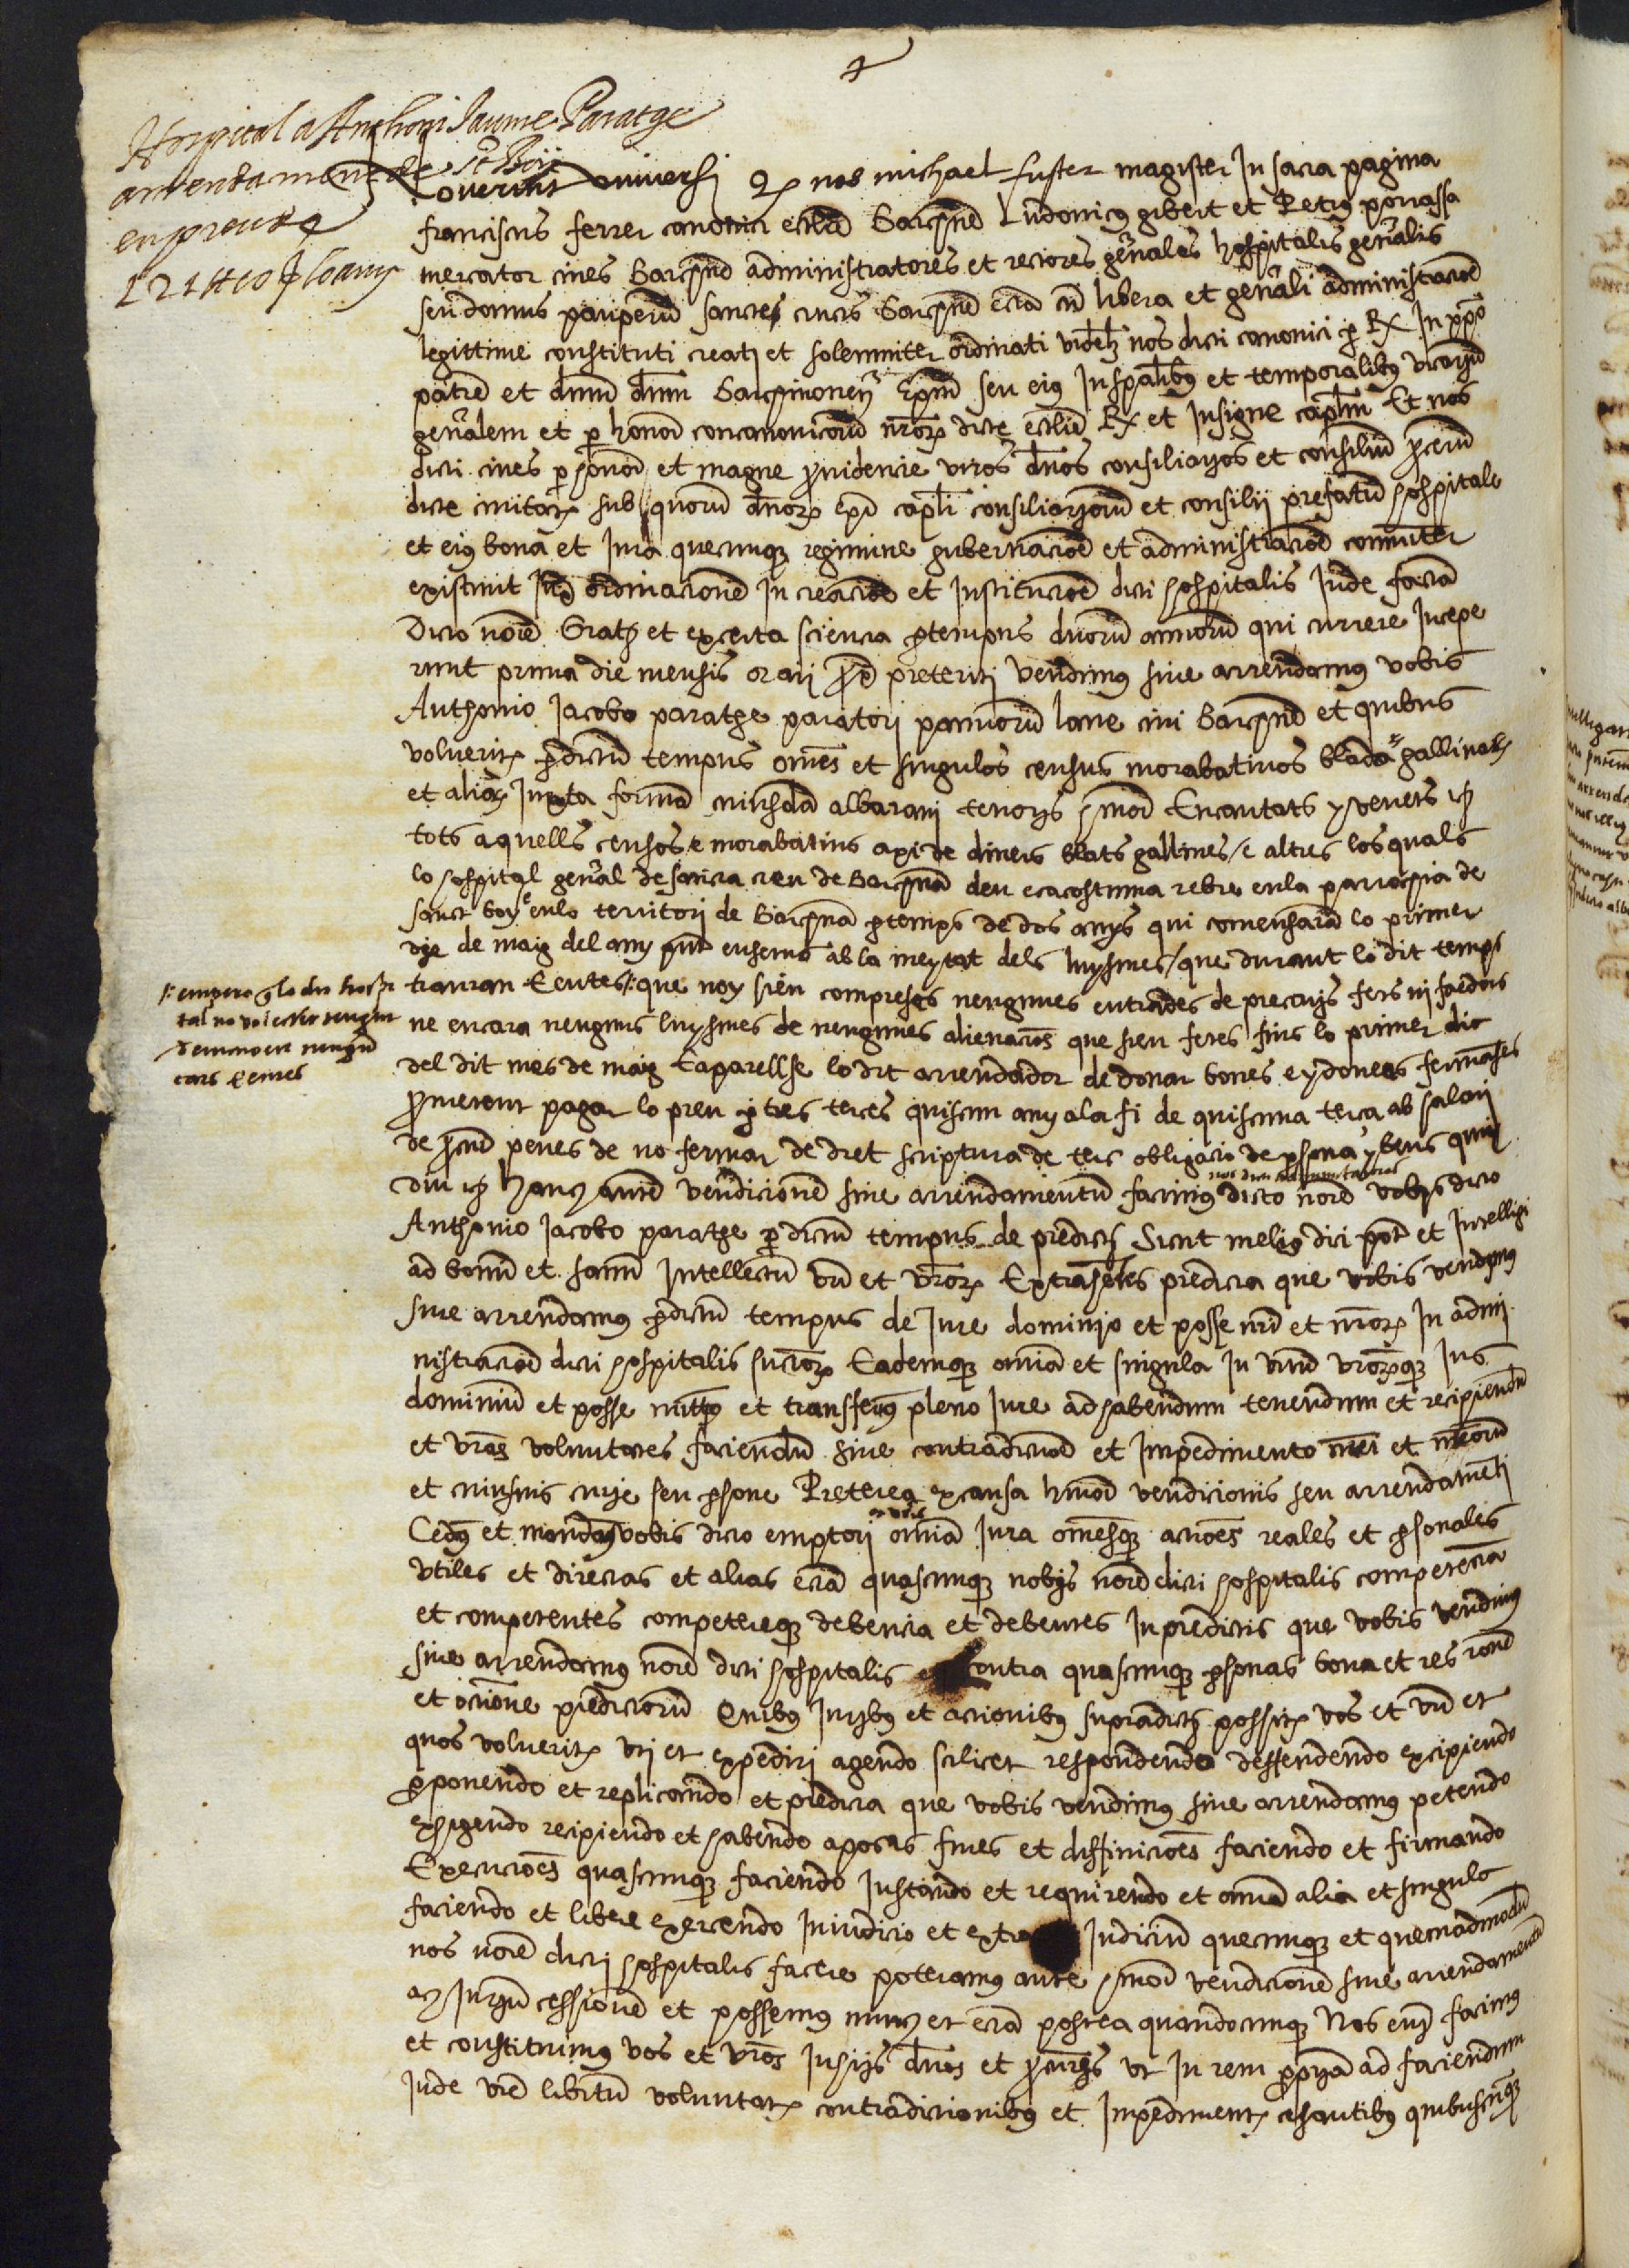 Hospital a Anthoni Jaume Paratge
arrendament de St Boy
en preu de
121 ll 10 s lo any
Noverint universi q nos michael fuster magister In sacra pagina
franciscus ferrer canonici ecclie Barchne Ludovicus gibert et Petrus porrassa
mercator cives Barchne administratores et rectores generales hospitalis generalis
seu domus pauperum sancte crucis Barchne ecia cu libera et generali administracioe
legittime constituti creati et solemniter ordinati videlz nos dicti canonici p Rx In xpo
patre et dnum dnm Barchinonen Epm seu eius In spalibus et temporalibus vicarium
generalem et p honor concanonicoru nror dicte ecclie Rx et Insigne caplm Et nos
dicti cives p honor et magne providencie viros dnos consiliarios et consilium centum
dicte civitatis sub quorum dnor epi capli consiliariorum et consilii prefatum hospitale
et eius bona et Jura quecunq regimine gubernacioe et administracioe comuniter
existunt Juxta ordinacione In creacioe et Institucioe dicti hospitalis Inde facta
Dicto noie Gratis et ex certa sciencia p tempus duorum annorum qui currere Incepe
runt prima die mensis madii prox preteriti vendimus sive arrendamus vobis
Anthonio Jacobo paratge paratori pannorum lane civi Barchne et quibus
volueritis p dictu tempus omes et singulos census morabatinos blada gallinas
et alia Juxta forma cuiusda albarani tenoris hmoi Encantats y venets is
tots aquells censos e morabatins axi de diners blats gallines e altres los quals
lo hospital general de sancta creu de Barchna deu e acostuma rebre en la parrochia de
sanct boy e en lo territori de Barchna p temps de dos anys qui comensara lo primer
die de maig del any pnt ensemps ab la meytat dels luysmes / que durant lo dit temps
/: empero q lo dit hospi
tal no vol esser tengut
de emmoure nengun
cars e emes
trauran E entes /: que noy sien compreses nengunes entrades de precaris fets ni faedors
ne encara nenguns luysmes de nengunes alienacios que sien fetes fins lo primer die
del dit mes de maig E aparellse lo dit arrendador de donar bones e ydonees fermanses
prometent pagar lo preu p tres terces quiscun any a la fi de quiscuna terca ab salari
de pcur penes de no fermar de dret scriptura de ters obligacio de persona y bens quin
nos dicti administratores
diu is Hanc aute vendicionem sive arrendamentum facimus dicto noie vobis dicto
Anthonio Jacobo paratge p dictu tempus de predictis Sicut melius dici pot et Intelligi
ad bonu et sanu Intellectum vru et vror Extrahetes predicta que vobis vendimus
sive arrendamus p dictu tempus de Jure dominio et posse nru et nror In admi
nistracioe dicti hospitalis succor Eademq omia et singula In vrum vrorq Jus
dominium et posse mittimus et transferimus pleno Jure ad habendum tenendum et recipiendu
et vras voluntates faciendu sine contradiccioe et Impedimento nri et nroru
et cuiusvis curie seu psone Preterea ex causa hmoi vendicionis seu arrendameti
Cedimus et mandamus vobis dicto emptori omia Jura omesq acciones reales et psonales
utiles et directas et alias ecia quascunq nobis noie dicti hospitalis competencia
et competentes competereq debencia et debentes In predictis que vobis vendimus
sive arrendamus noie dicti hospitalis contra quascunq psonas bona et res rone
et occasione predictorum Quibus Juribus et accionibus supradictis possitis vos et vri et
quos volueritis uti et expediri agendo scilicet respondendo deffendendo excipiendo
proponendo et replicando et predicta que vobis vendimus sive arrendamus petendo
exhigendo recipiendo et habendo apocas fines et diffiniciones faciendo et firmando
Execuciones quascunq faciendo Instando et requirendo et omia alia et singula
faciendo et libere exercendo In iudicio et extra Judicium quecunq et quemadmodu
nos noie dicti hospitalis facere poteramus ante hmoi vendicionem sive arrendamentu
ac Jurium cessionem et possemus nunc et ecia postea quandocunq Nos enim facimus
et constituimus vos et vros In hiis dnos et procures ut In rem propria ad faciendum
Inde vre libitum voluntatis contradiccionibus et Impedimentis cessantibus quibuscunq